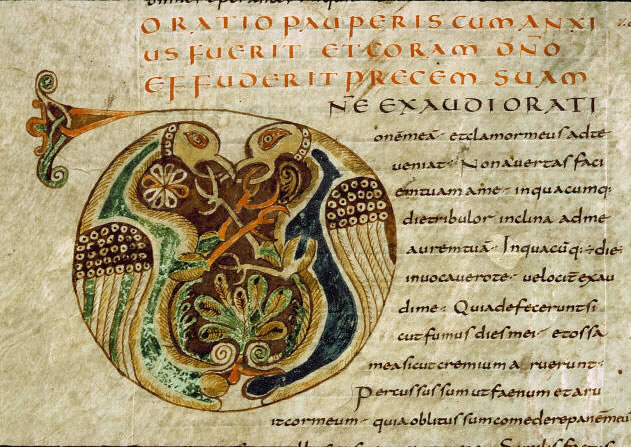 ORATIO PAUPERIS CUM ANXI
US FUERIT ET CORAM DÑO
EFFUDERIT PRECEM SUAM
DN̄E EXAUDI ORATI
onem meā et clamor meus ad te
veniat Non avertas faci
em tuam a me in quacumq:
die tribulor inclina ad me
aurem tuā In quacūq: die
invocavero te velocit̄ exau
di me Quia defecerunt si
cut fumus dies mei et ossa
mea sicut cremium aruerunt
Percussus sum ut faenum et aru
it cor meum quia oblitus sum comedere panē meū